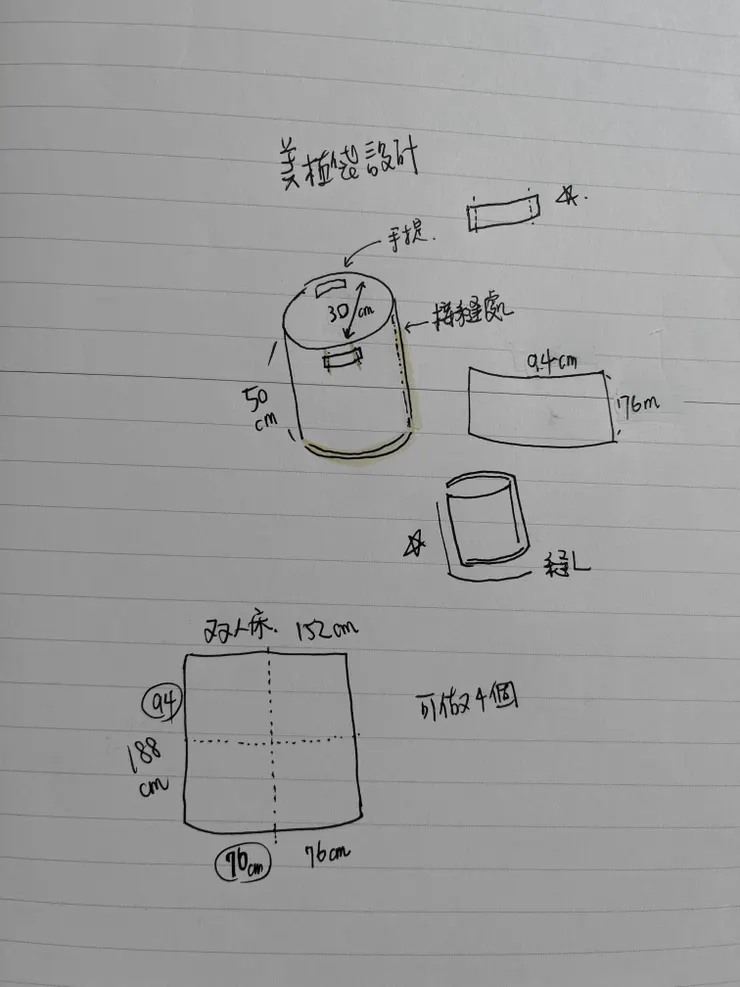 美植袋設計
手提.
30 cm
接縫處
50
cm
94cm
76m
縫L
双人床. 152cm
94
188
cm
可做4個
76cm
76cm